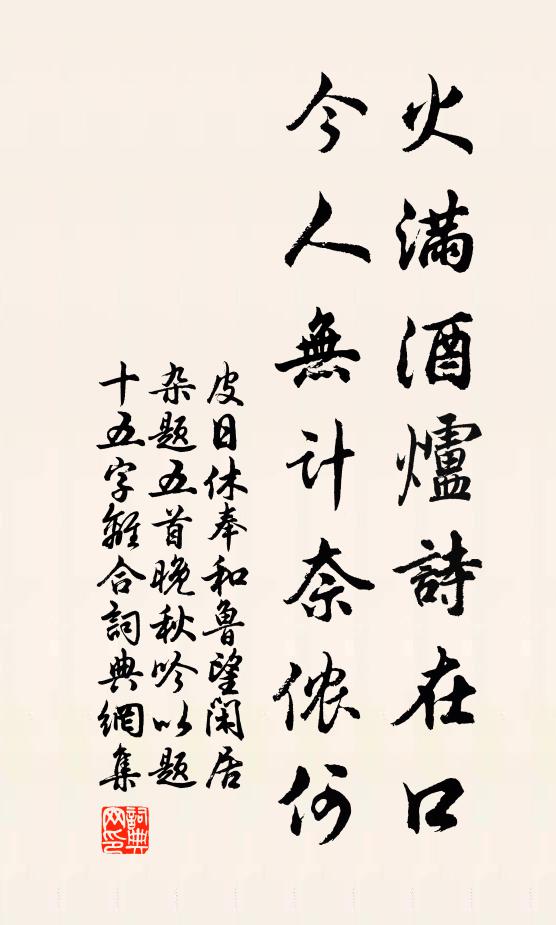 火滿酒爐詩在口
今人無計奈儂何
皮日休奉和魯望闲居
杂题五首晚秋吟以题
十五字離合詞典網集
詞典网印